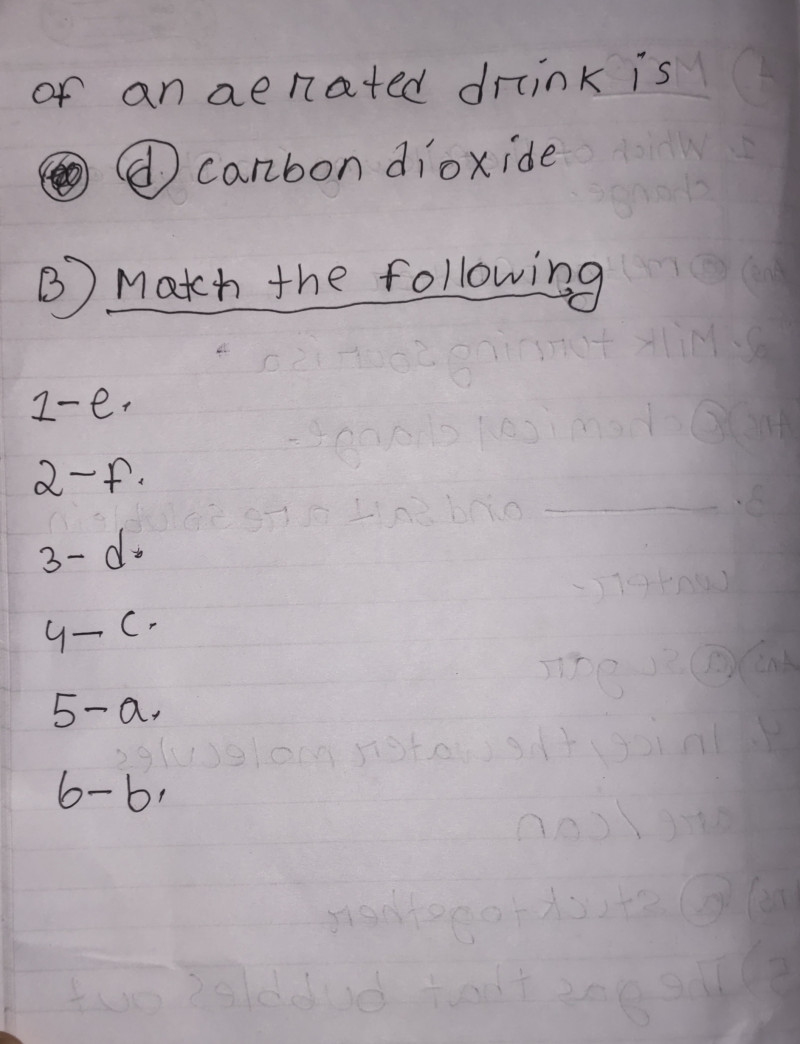 of an aerated drink is
d. carbon dioxide
B) Match the following
1-e.
2-f.
3-d.
4-c.
5-a.
6-b.